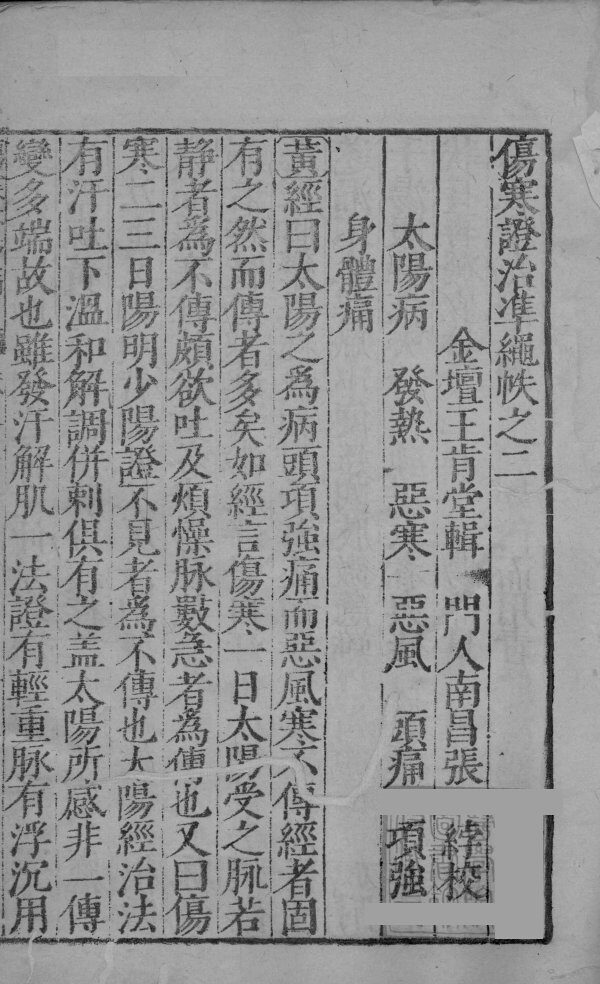 傷寒證治準繩帙之二
金壇王肯堂輯　門人南昌張　綘校
太陽病　發熱　惡寒　惡風　頭痛　項強
身體痛
黃經曰太陽之為病頭項強痛而惡風寒不傳經者固
有之然而傳者多矣如經言傷寒一日太陽受之脉若
静者為不傳頗欲吐及煩懆脉數急者為傳也又曰傷
寒二三日陽明少陽證不見者為不傳也太陽經治法
有汗吐下溫和解調併刺俱有之盖太陽所感非一傳
變多端故也雖發汗解肌一法證有輕重脉有浮沉用